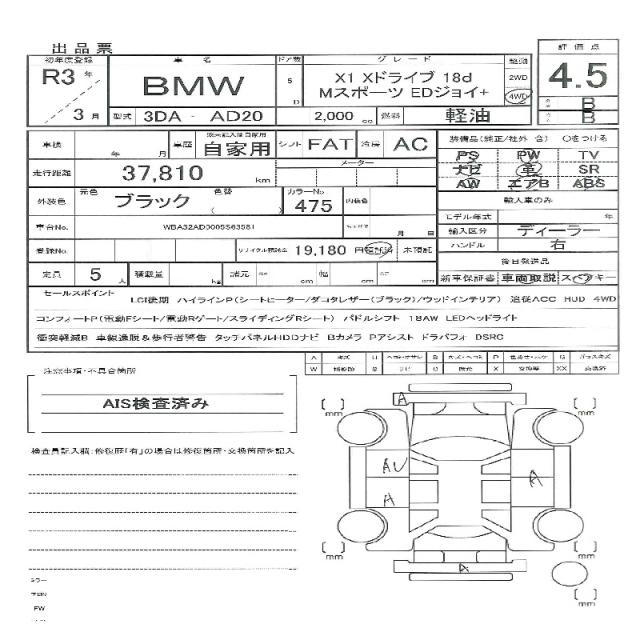 出品票
初年度登録 車名 ドア数 グレード 駆動 評価点
R3年 3月 BMW 5 D X1 Xドライブ 18d 2WD 4.5
Mスポーツ EDジョイ+ 4WD B
型式 3DA - AD20 2,000 cc 燃料 軽油 B
車検 年 月 車歴 自家用 シフト FAT 冷房 AC 装備品(純正/社外 含) ○をつける
走行距離 37,810 km メーター PS PW TV
ナビ 革 SR
外装色 元色 ブラック 色替 ( ) カラーNo 475 内装色 AW エアB ABS
輸入車のみ
車台No. WBA32AD0005S63581 月 日 モデル年式 年
輸入区分 ディーラー
登録No. リサイクル預託金 19,180 円 預託済 未預託 ハンドル 右
後日発送品
定員 5 人 積載量 kg 諸元 長さ cm 幅 cm 高さ cm 新車保証書 車両取説 スペアキー
セールスポイント LCI後期 ハイラインP(シートヒーター/ダコタレザー(ブラック)/ウッドインテリア) 追従ACC HUD 4WD
コンフォートP(電動Fシート/電動Rゲート/スライディングRシート) パドルシフト 18AW LEDヘッドライト
衝突軽減B 車線逸脱&歩行者警告 タッチパネルHDDナビ Bカメラ Pアシスト ドラパフォ DSRC
A キズ U B P G
W S C X 交換要 XX 交換済
注意事項・不具合箇所
AIS検査済み
検査員記入欄:修復歴「有」の場合は修復箇所・交換箇所を記入
A
[ ] mm [ ] mm
AU
A A
[ ] mm [ ] mm
A
[ ] mm
ミラー
PW